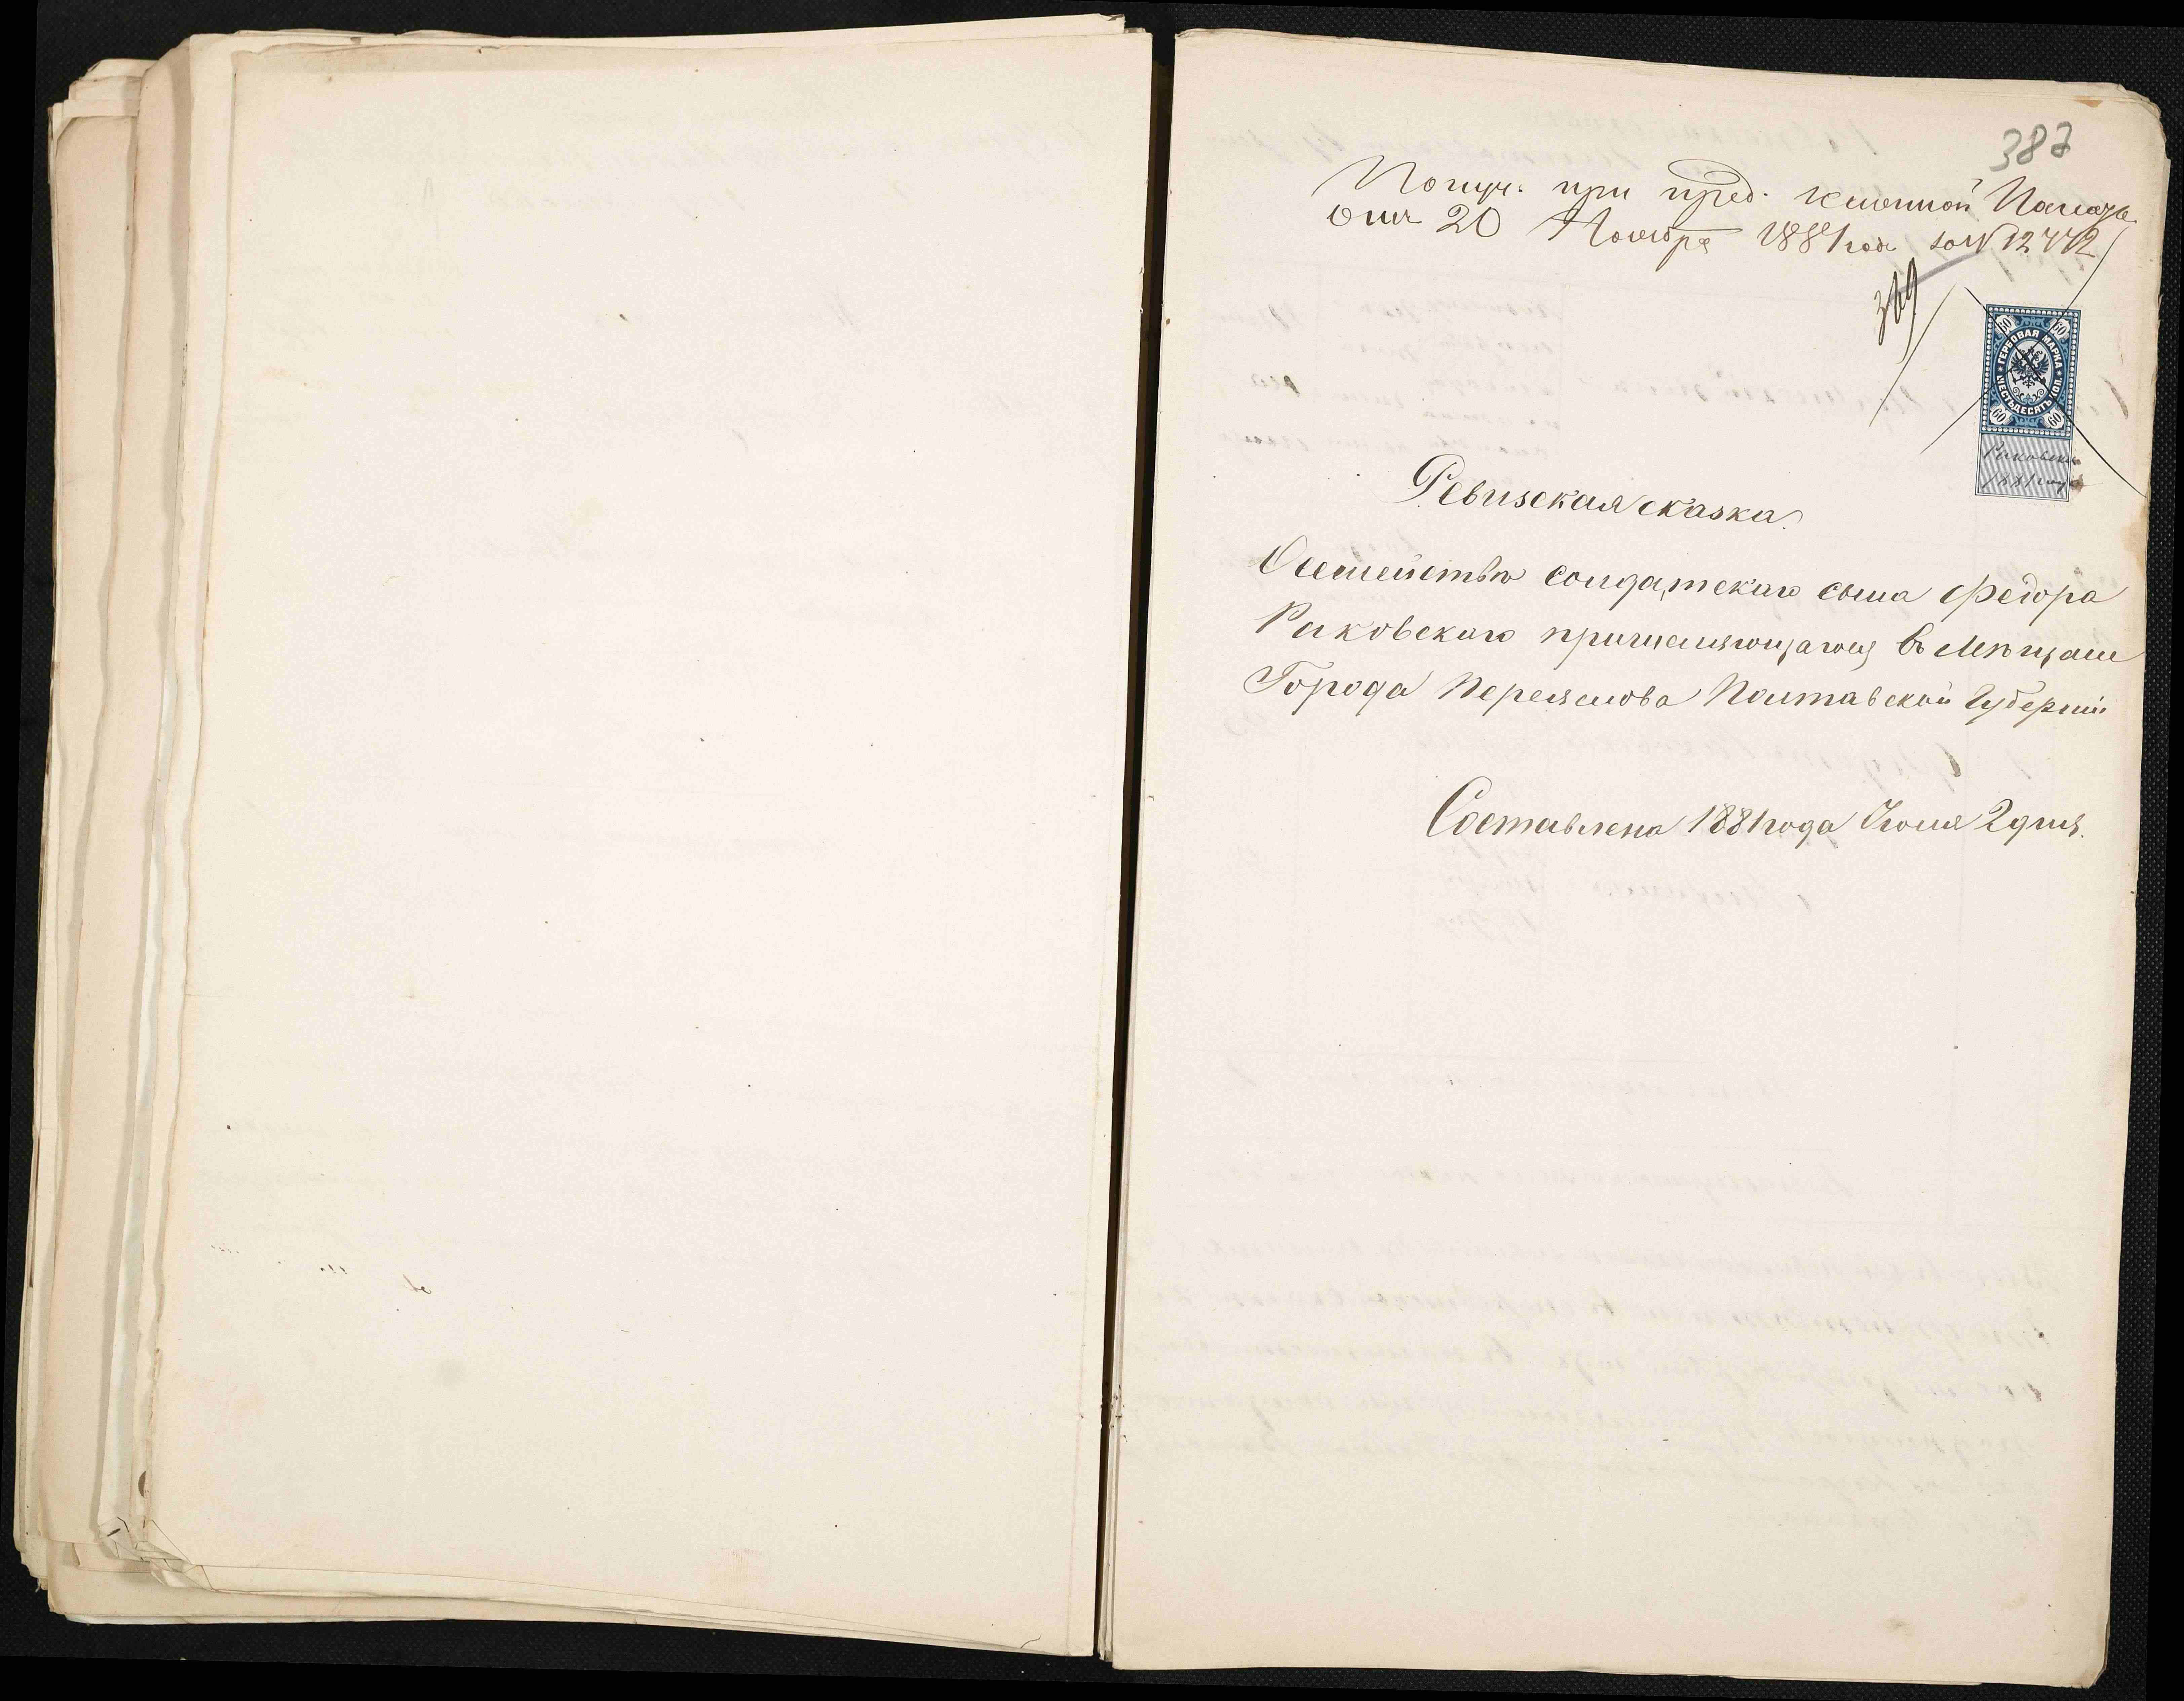 387
Получ. при пред. казенной Палаты
отъ 20 Ноября 1881 года за № 12442
369
60 60
ГЕРБОВАЯ МАРКА
ШЕСТЬДЕСЯТЪ КОП.
60 60
Раковск
1881 года
Ревизская сказка.
О семействѣ солдатскаго сына Федора
Раковскаго причисляющагося въ Мѣщане
Города Переяслова Полтавской Губерніи
Составлена 1881 года Іюня 2 дня.